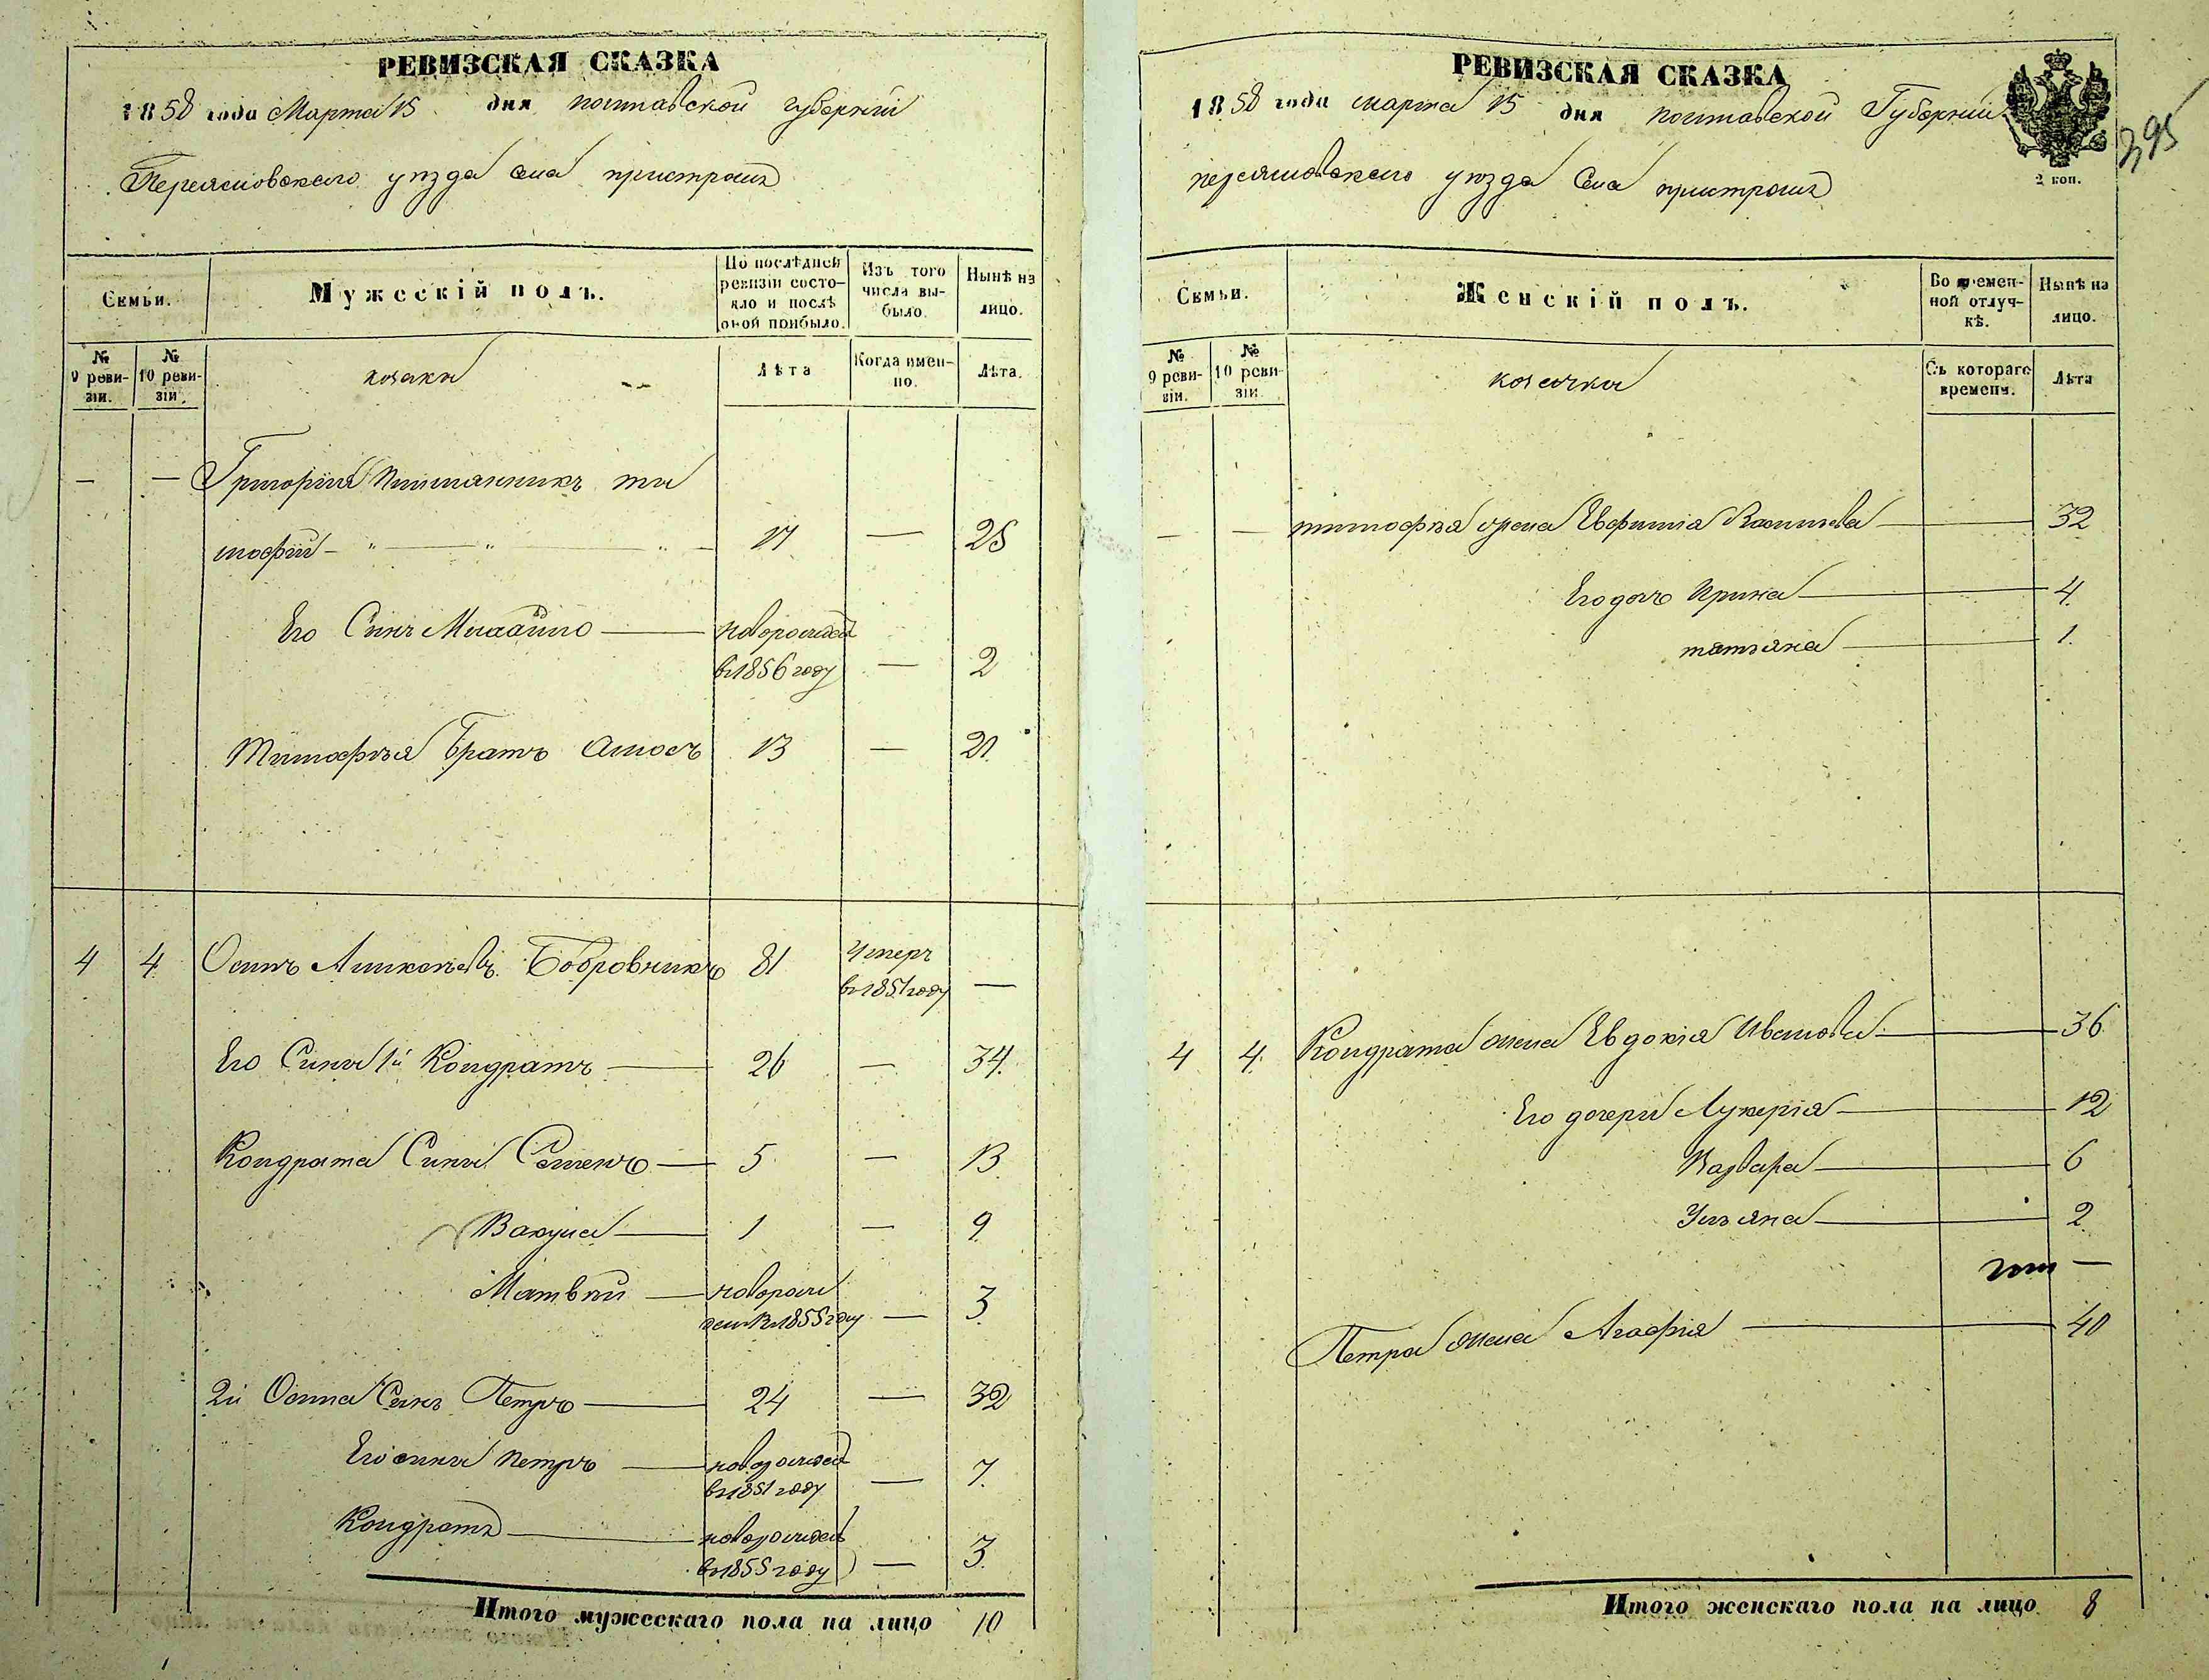 РЕВИЗСКАЯ СКАЗКА
1858 года Марта 15 дня полтавской губерніи
Переясловского уѣзда села пристромъ
Семьи.
Мужескій полъ.
По послѣдней ревизіи состояло и послѣ оной прибыло.
Изъ того числа выбыло.
Нынѣ на лицо.
№ 9 ревизіи.
№ 10 ревизіи.
козаки
Лѣта
Когда именно.
Лѣта.
— — Григорія ти
мофій — " — " — " — 17 — 25
Его Синъ Михайло — новорожден
в 1856 году — 2
Тимофѣя Братъ Амосъ 13 — 21
4 4 Осипъ Бобровникъ 81 Умеръ
в 1851 году —
Его Сины 1й Кондратъ — 26 — 34.
Кондрата Сины Семенъ — 5 — 13
Вакула — 1 — 9
Матвѣй — новорож
ден в 1855 году — 3
2й Осипа Синъ Петръ — 24 — 32
Его сины Петръ — новорожден
в 1851 году — 7.
Кондратъ — новорожден
в 1855 году — 3
Итого мужескаго пола на лицо 10
РЕВИЗСКАЯ СКАЗКА
1858 года марта 15 дня полтавской Губерніи
переясловского уѣзда Села пристромъ
2 коп.
395
Семьи.
Женскій полъ.
Во временной отлучкѣ.
Нынѣ на лицо.
№ 9 ревизіи.
№ 10 ревизіи.
козачки
Съ котораго времени.
Лѣта
— — тимофѣя жена Евфимія — 32
Его дочь Ирина — 4.
татьяна — 1.
4 4. Кондрата жена Евдокія Иванова — 36
Его дочери Лукерія — 12
Варвара — 6
Ульяна — 2.
Петра жена Агафія — 40
Итого женскаго пола на лицо 8